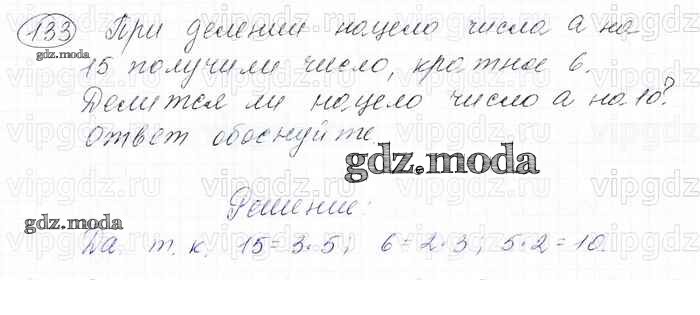 133 При делении нацело числа a на
gdz.moda
15 получили число, кратное 6.
Делится ли нацело число a на 10?
Ответ обоснуйте.
gdz.moda
Решение:
gdz.moda
Да. т. к. 15=3·5; 6=2·3; 5·2=10.